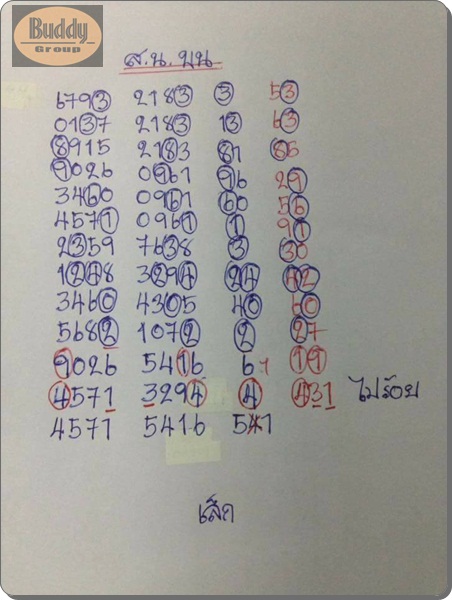 Buddy
Group
ส.น. บน
6793 2183 3 53
0137 2183 13 63
8915 2183 81 86
9026 0961 96 29
3460 0961 60 56
4571 0961 1 91
2359 7638 3 30
1248 3294 24 42
3460 4305 40 60
5682 1072 2 27
9026 5416 61 19
4571 3294 4 431 ไปร้อย
4571 5416 541
เล็ก